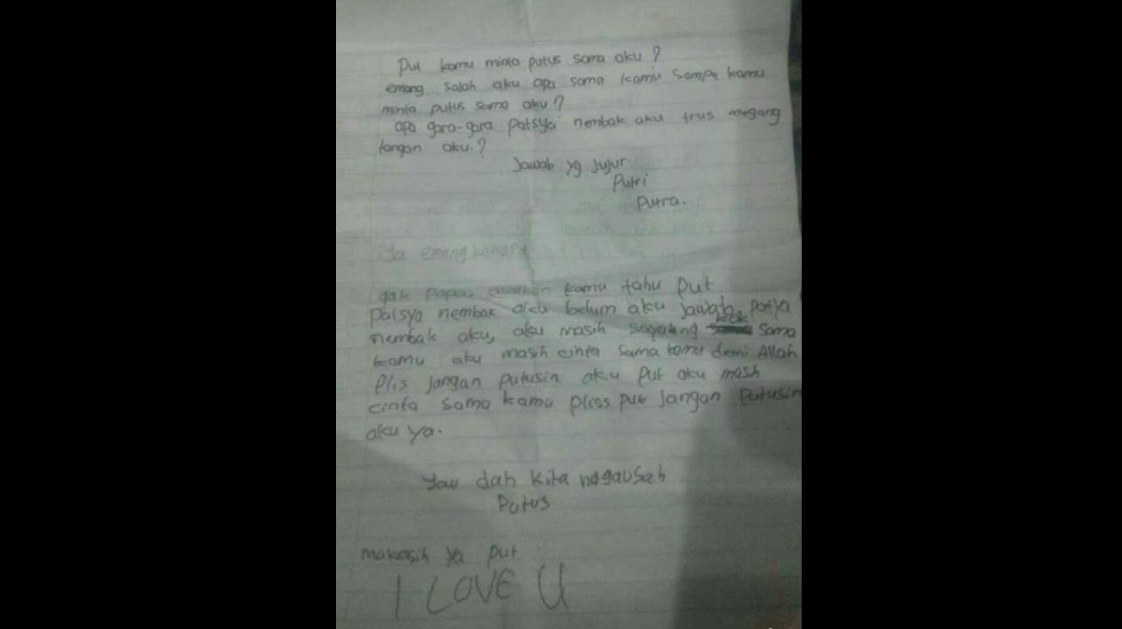 Put kamu minta putus sama aku?
emang salah aku apa sama kamu sampe kamu
minta putus sama aku?
apa gara-gara Patsya nembak aku trus megang
tangan aku.?
Jawab yg jujur
Putri
Putra.
iya emang kenapa
gak papa, kamu tahu put
patsya nembak aku belum aku jawab, patya
nembak aku, aku masih sayang kok sama
kamu aku masih cinta sama kamu demi Allah
Plis jangan putusin aku put aku mash
cinta sama kamu pliss put jangan putusin
aku ya.
yau dah kita nggausah
Putus
makasih ya put
I LOVE U